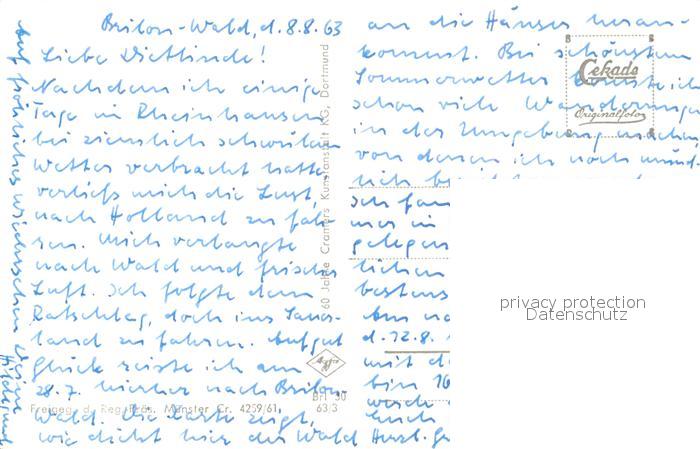 Brilon-Wald, d. 8.8.63
Liebe Dietlinde!
Nachdem ich einige
Tage in Rheinhausen
bei ziemlich schwülem
Wetter verbracht hatte
verließ mich die Lust,
nach Holland zu fah-
ren. Mich verlangte
nach Wald und frischer
Luft. Ich folgte dem
Ratschlag, doch ins Sauer-
land zu fahren. Auf gut
Glück reiste ich am
28.7. hierher nach Brilon-
Wald. Die Karte zeigt,
wie dicht hier der Wald
an die Häuser heran-
kommt. Bei schönstem
Sommerwetter konnte ich
schon viele Wanderungen
in der Umgebung machen
von denen ich noch münd-
lich
Ich
mer in
gelegen
lichen
bestens
d. 12.8.
mit
bin 16
werde
Euch
Herzl.
Auf fröhliches Wiedersehen Deine
Hildegund
60 Jahre Cramers Kunstanstalt KG, Dortmund
Cekade
Originalfoto
Agfa
Bri 30
63/3
Freigeg. d. Reg. Präs. Münster Cr. 4259/61
privacy protection
Datenschutz